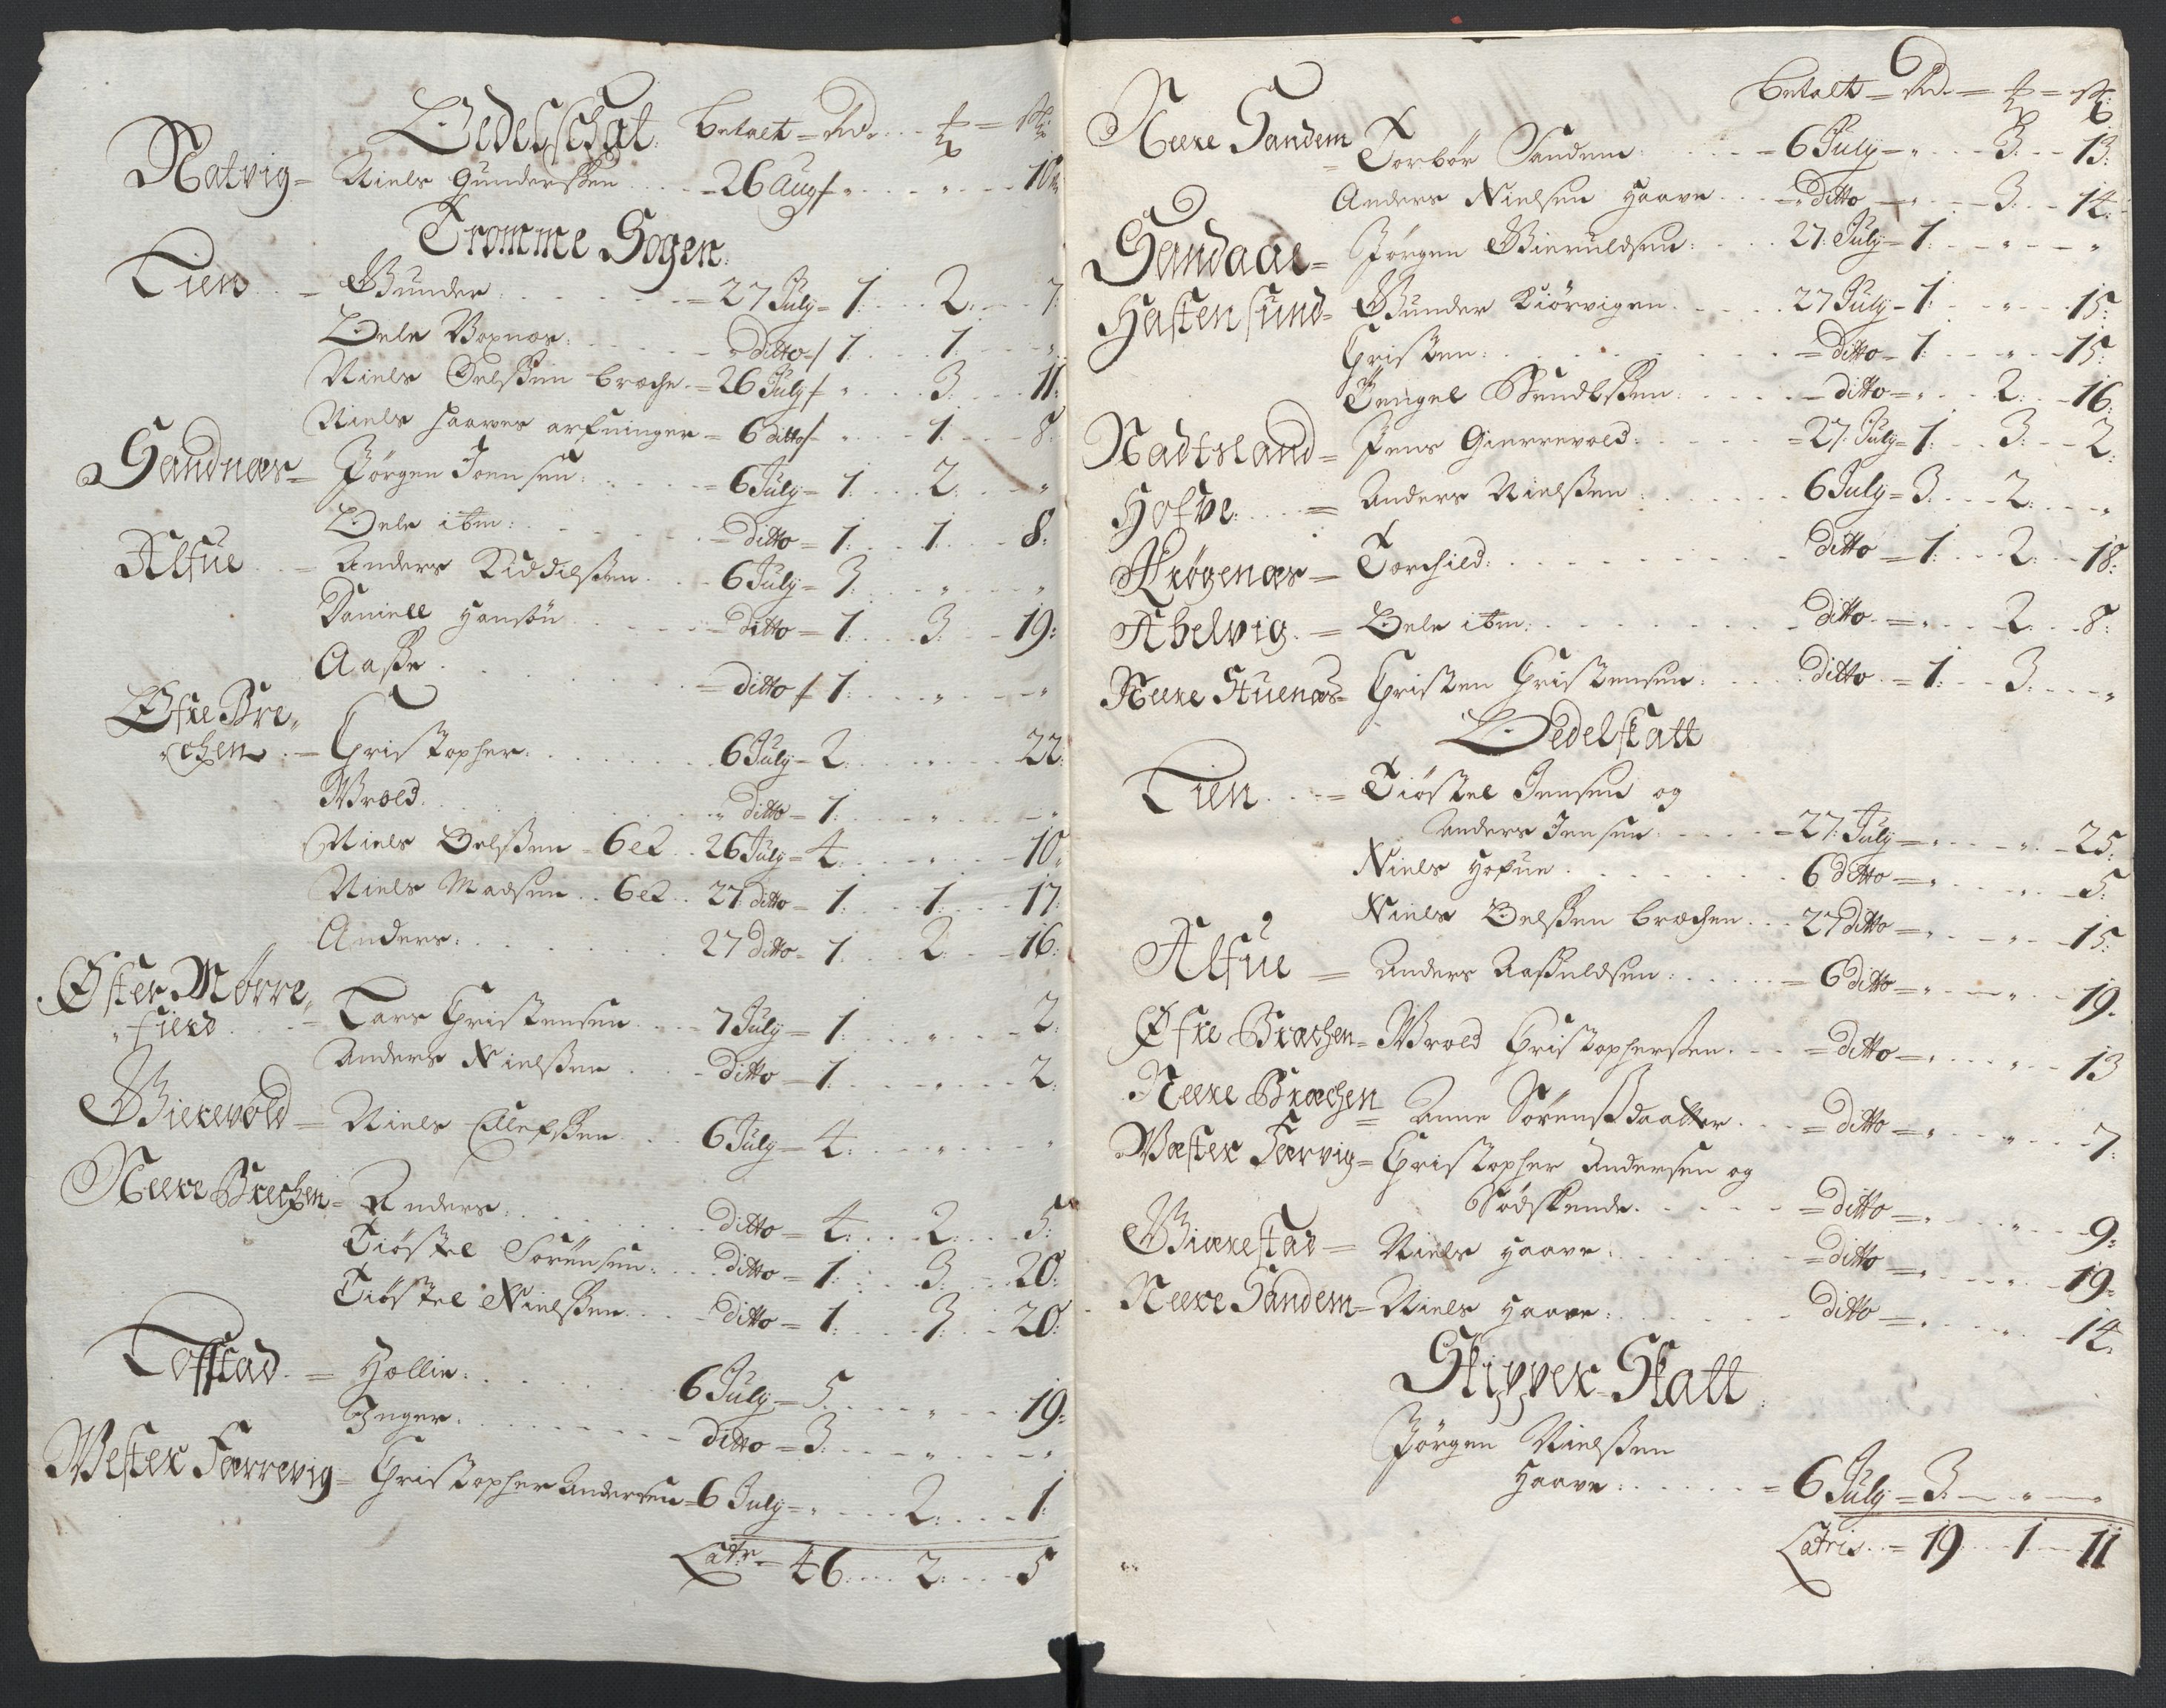 Oedelschat betalt = Rd. = =
Natvig = Niels Gundersßen . . . . = 26 Aug . . . 10
Tromme Sogen
Tien . . = Gunder . . . . = 27 July = 1: . . 2: . . 7:
Oele Bopnæs: . . ditto 1: . . 1: . . "
Niels Oelsßen bræche = 26 July " . . 3: . . 11:
Niels Haaves arfuinger = 6 ditto " . . 1: . . 8:
Sandnæs = Jørgen Joensen: . . = 6 July = 1: . . 2: . . "
Oele ibm: . . = ditto = 1: . . 1: . . 8:
Alfue . . = Anders Kiddilsßen . . 6 July = 3 . . " . . "
Daniell Hansøn . . = ditto = 1: . . 3: . . 19:
Aasße . . = ditto 1: . . " . . "
Øfre Bre"
"chen . . = Christopher: . . 6 July = 2: . . . . 22:
Wrold . . " ditto = 1: . . " . . "
Niels Oelsßen = 6e2 . . 26 July = 4: . . " . . 10:
Niels Madsen . . 6e2 . . 27 ditto = 1: . . 1: . . 17:
Anders: . . 27 ditto = 1: . . 2: . . 16:
Øster Mørre"
"fierd . . = Lars Christensen . . 7 July = 1: . . " . . 2:
Anders Nielsßen . . = ditto = 1: . . " . . 2:
Gierevold = Niels Ellefsßen . . 6 July = 4: . . " . . "
Neere Brechen = Anders: . . ditto = 4: . . 2: . . 5:
Tiøstel Sørensen: . . ditto = 1: . . 3: . . 20:
Tiøstel Nielsßen . . = ditto = 1: . . 3: . . 20:
Tofstad . . = Hollie: . . 6 July = 5 . . " . . 19:
Inger: . . ditto = 3: . . " . . "
Wester Færrevig = Christopher Andersen = 6 July = " . . 2: . . 1:
Latr = 46: . . 2: . . 5
6
betalt = Rd. = =
Neere Sandem = Torbør Sandem: . . = 6 July = " . . 3: . . 13:
Anders Nielsen Haave . . = ditto = " . . 3: . . 14:
Sandaae = Jørgen Bieruldsen: . . 27: July = 1: . . " . . "
Hastensund = Gunder Kiørvigen . . 27 July = 1: . . " . . 15:
Christen: . . = ditto = 1: . . " . . 15:
Tengel Svendlsßen: . . = ditto = " . . 2: . . 16:
Nadtsland = Jens Gierrevold: . . = 27: July = 1: . . 3: . . 2:
Hofve: . . = Anders Nielsßen: . . 6 July = 3: . . 2: . . "
Krøgenæs = Torchild: . . ditto = 1: . . 2: . . 18:
Abelvig . = Oele ibm: . . = ditto = " . . 2: . . 8:
Neere Stuenæs = Christen Christensen: . . ditto = 1: . . 3: . . "
Oedelskatt
Tien . . = Tiøstel Jensen og
Anders Jensen: . . = 27: July = " . . " . . 25:
Niels Hofue . . 6 ditto = " . . " . . 5:
Niels Oelsßen bræchen . . 27 ditto = " . . " . . 15:
Alfue = Anders Aasßuldsen: . . = 6 ditto = " . . " . . 19.
Øfre Bræchen = Wrold Christophersßen . . = ditto = " . . " . . 13
Neere Bræchen = Anne Sørensdaatter . . = ditto = " . . " . . 7:
Wæster Færvig = Christopher Andersen og
Sødskende . . = ditto = " . . " . . 9:
Gierestad = Niels Haave: . . = ditto = " . . " . . 19:
Neere Sandem = Niels Haave: . . ditto = " . . " . . 14:
Skipper Skatt
Jørgen Nielsßen
Haave: . . = 6 July = 3: . . " . . "
Latris . . = 19 . . 1 . . 11